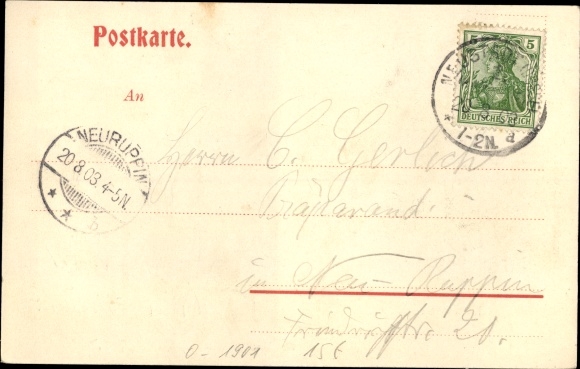 Postkarte.
An
5 5
DEUTSCHES REICH
1-2N. d
NEURUPPIN
20.8.03. 4-5N.
* * b
Herrn C. Gerlich
Präparand.
in Neu-Ruppin
20.
0-1901 15E